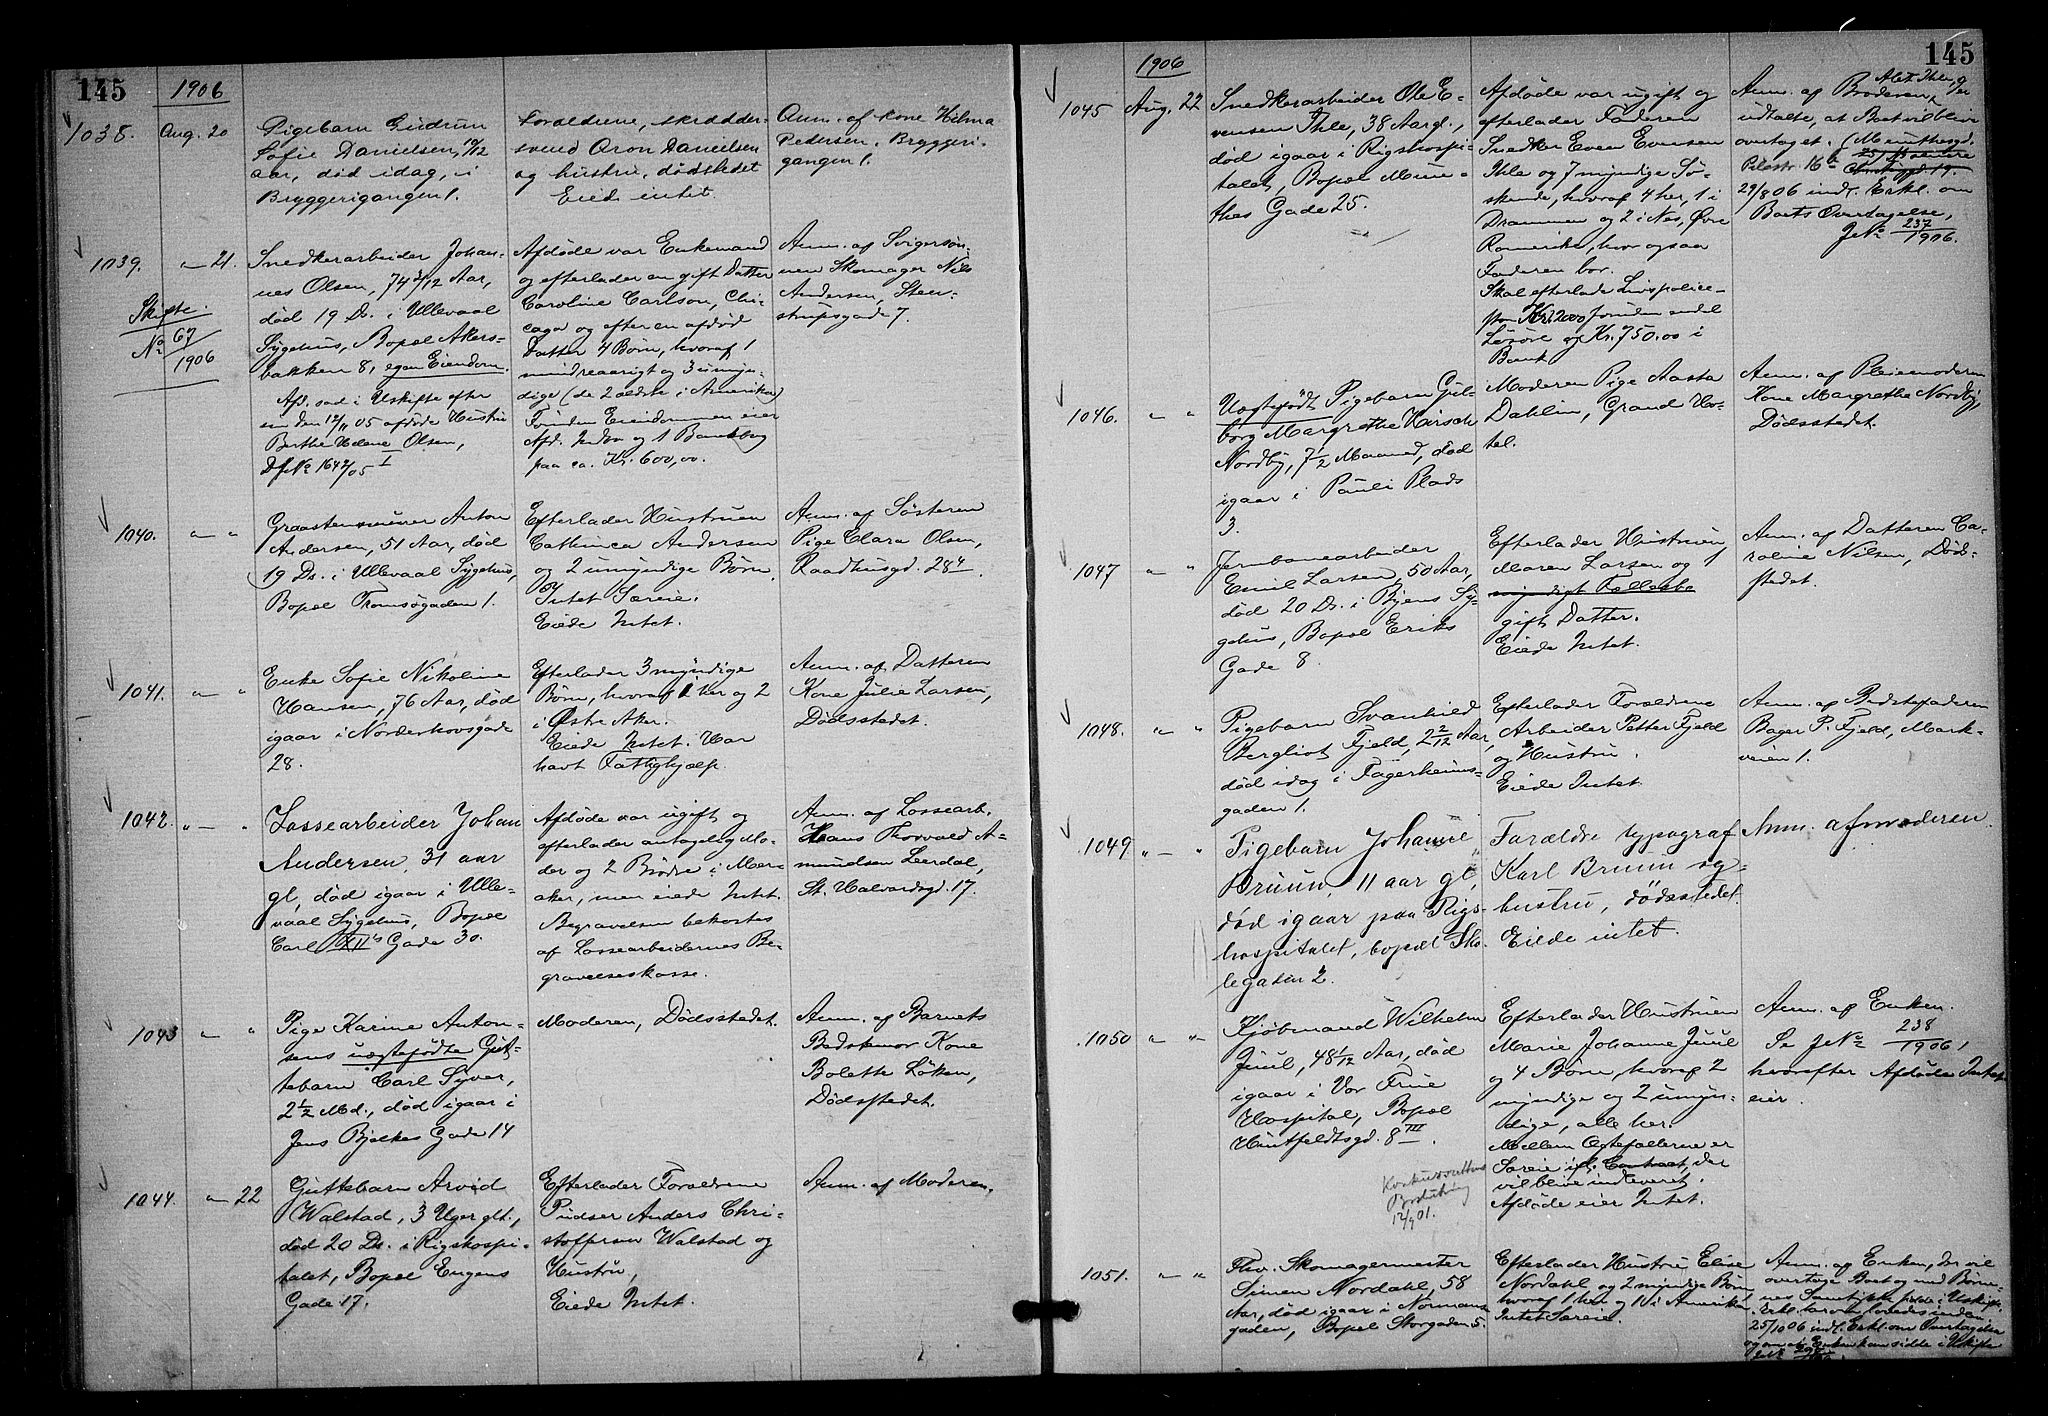 145
1906
1038.
Aug. 20
Pigebarn Gudrun
Sofie Danielsen, 10/12
aar, død idag, i
Bryggerigangen 1.
Forældrene, skrædder-
svend Aron Danielsen
og hustru, dødsstedet
Eied intet.
Anm. af kone Hilma
Pedersen, Bryggeri-
gangen 1.
1039.
" 21.
Skifte
No 67/1906
Snedkerarbeider Johan-
nes Olsen, 74 3/12 Aar,
død 19 Ds. i Ullevaal
Sygehus, Bopæl Akers-
bakken 8, egen Eiendom.
Afd. sad i Uskifte efter
sin den 12/11 05 afdøde Hustru
Berthe Helene Olsen,
DfNo 1642/05 I
Afdøde var Enkemand
og efterlader en gift Datter
Caroline Carlson, Chi-
cago og efter en afdød
Datter 4 Børn, hvoraf 1
mindreaarigt og 3 umyn-
dige (de 2 ældste i Amerika)
Foruden Eiendommen eier
Afd. Indbo og 1 Bankbog
paa ca. Kr. 600,00.
Anm. af Svigersøn-
nen Skomager Nils
Andersen, Steen-
strupsgade 7.
1040.
" "
Graastensmurer Anton
Andersen, 51 Aar, død
19 Ds. i Ullevaal Sygehus,
Bopæl Tromsøgaden 1.
Efterlader Hustruen
Cathinca Andersen
og 2 umyndige Børn.
Intet Særeie.
Eiede Intet.
Anm. af Søsteren
Pige Clara Olsen,
Raadhusgd. 28 4.
1041.
" "
Enke Sofie Nikoline
Hansen, 76 Aar, død
igaar i Norderhovsgade
28.
Efterlader 3 myndige
Børn, hvoraf 1 her og 2
i Østre Aker.
Eiede Intet. Har
havt Fattighjælp.
Anm. af Datteren
Kone Julie Larsen,
Dødsstedet.
1042.
" "
Lossearbeider Johan
Andersen, 31 aar
gl, død igaar i Ulle-
vaal Sygehus, Bopæl
Carl XII's Gade 30.
Afdøde var ugift og
efterlader antagelig Mo-
der og 2 Brødre i Mer-
aker, men eiede Intet.
Begravelsen bekostes
af Lossearbeidernes Be-
gravelseskasse.
Anm. af Lossearb.
Hans Thorvald A-
mundsen Leerdal,
St. Halvardsgd. 17.
1043
" "
Pige Karine Anton-
sens uægtefødte Gut-
tebarn Carl Syver,
2 1/2 Md., død igaar i
Jens Bjelkes Gade 14
Moderen, Dødsstedet.
Anm. af Barnets
Bedstemor Kone
Bolette Løkken,
Dødsstedet.
1044.
" 22
Guttebarn Arvid
Walstad, 3 Uger glt.,
død 20 Ds. i Rigshospi-
talet, Bopæl Eugens
Gade 17.
Efterlader Forældrene
Pudser Anders Chri-
stoffersen Walstad og
Hustru,
Eiede Intet.
Anm. af Moderen.
145
1906
1045
Aug. 22
Snedkerarbeider Ole E-
vensen Ihle, 38 Aar gl.,
død igaar i Rigshospi-
talet, Bopæl Mun-
thes Gade 25.
Afdøde var ugift og
efterlader Faderen
Snedker Even Evensen
Ihle og 7 myndige Sø-
skende, hvoraf 4 her, 1 i
Drammen og 2 i Nes, Øvre
Romerike, hvor ogsaa
Faderen bor.
Skal efterlade Livspolice
stor Kr. 2000 foruden endel
Løsøre og Kr. 750.00 i
Bank
Anm. af Broderen, Alex Ihle, og
udtalte, at Boet vil blive
overtaget. (Munthesgd.
Pilestr. 16 b
29/8 06 indl. Erkl. om
Boets Overtagelse,
JNo 237/1906.
1046.
" "
Uægtefødt Pigebarn Gul-
borg Margrethe Hirsch
Nordby, 7 1/2 Maaned, død
igaar i Pauli Plads
3.
Moderen Pige Aasta
Dahlin, Grand Ho-
tel.
Anm. af Pleiemoderen
Kone Margrethe Nordby,
Dødsstedet.
1047
" "
Jernbanearbeider
Emil Larsen, 50 Aar,
død 20 Ds. i Byens Sy-
gehus, Bopæl Eriks
Gade 8.
Efterlader Hustruen,
Maren Larsen og 1
myndigt Fællesba
gift Datter.
Eiede Intet.
Anm. af Datteren Ca-
roline Nilsen, Døds-
stedet.
1048.
" "
Pigebarn Svanhild
Bergliot Fjeld, 2 2/12 Aar,
død idag i Fagerheims-
gaden 1.
Efterlader Forældrene
Arbeider Petter Fjeld
og Hustru.
Eiede Intet.
Anm. af Bedstefaderen
Bager P. Fjeld, Mark-
veien 1.
1049
" "
Pigebarn Johanne
Bruun, 11 aar gl,
død igaar paa Rigs-
hospitalet, bopæl Sko-
legaden 2.
Forældre typograf
Karl Bruun og
hustru, dødsstedet.
Eiede intet.
Anm. af moderen.
1050
" "
Kjøbmand Wilhelm
Juul, 48 1/12 Aar, død
igaar i Vor Frue
Hospital, Bopæl
Huitfeldtsgd. 8 III.
12/9 01.
Efterlader Hustruen
Marie Johanne Juul
og 4 Børn, hvoraf 2
myndige og 2 umyn-
dige, alle her.
Mellem Ægtefællerne er
Særeie ifl. Contract, der
vil blive indleveret.
Afdøde eier Intet.
Anm. af Enken.
Se JNo 238/1906,
hvorefter Afdøde Intet
eier.
1051.
" "
Fhv. Skomagermester
Simen Nordahl, 58
Aar, død igaar i Normans-
gaden, Bopæl Storgaden 5.
Efterlader Hustru Elise
Nordahl og 2 myndige Børn
hvoraf 1 her og 1 i Amerika.
Intet Særeie.
Anm. af Enken, der vil
overtage Boet og med Børne-
nes Samtykke sidde i Uskifte.
Erkl. herom loves inden
25/10 06 indl. Erkl. om Overtagelse
og om at Enken kan sidde i Uskifte